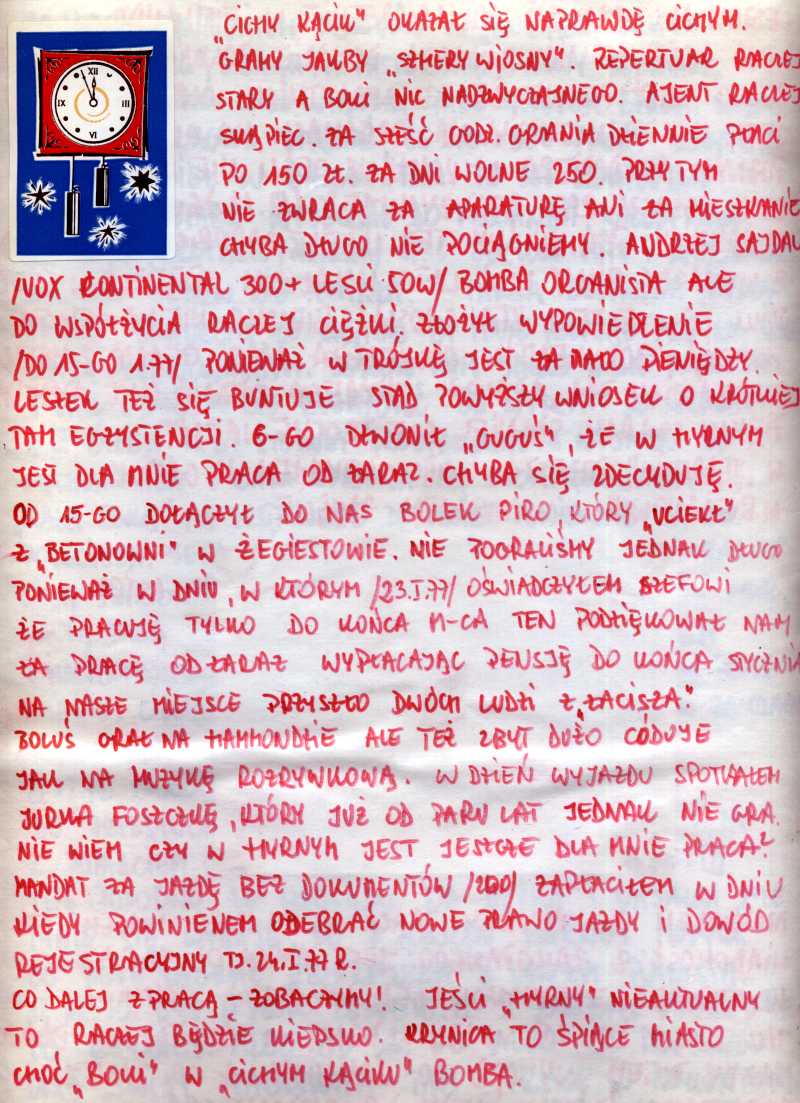 "CICHY KĄCIK" OKAZAŁ SIĘ NAPRAWDĘ CICHYM.
GRAMY JAKBY "SZMERY WIOSNY". REPERTUAR RACZEJ
STARY A BOKI NIC NADZWYCZAJNEGO. AJENT RACZEJ
SKĄPIEC. ZA SZEŚĆ GODZ. GRANIA DZIENNIE PŁACI
PO 150 ZŁ. ZA DNI WOLNE 250. PRZY TYM
NIE ZWRACA ZA APARATURĘ ANI ZA MIESZKANIE
CHYBA DŁUGO NIE POCIĄGNIEMY. ANDRZEJ SAJDAK
/VOX KONTINENTAL 300+ LESLI 50W/ BOMBA ORGANISTA ALE
DO WSPÓŁŻYCIA RACZEJ CIĘŻKI. ZŁOŻYŁ WYPOWIEDZENIE
/DO 15-GO 1.77/ PONIEWAŻ W TRÓJKĘ JEST ZA MAŁO PIENIĘDZY.
LESZEK TEŻ SIĘ BUNTUJE STĄD POWYŻSZY WNIOSEK O KRÓTKIEJ
TAM EGZYSTENCJI. 6-GO DZWONIŁ "GUGUŚ", ŻE W HYRNYM
JEST DLA MNIE PRACA OD ZARAZ. CHYBA SIĘ ZDECYDUJĘ.
OD 15-GO DOŁĄCZYŁ DO NAS BOLEK PIRO, KTÓRY "UCIEKŁ"
Z "BETONOWNI" W ŻEGIESTOWIE. NIE POGRALIŚMY JEDNAK DŁUGO
PONIEWAŻ W DNIU, W KTÓRYM /23.I.77/ OŚWIADCZYŁEM SZEFOWI
ŻE PRACUJĘ TYLKO DO KOŃCA M-CA TEN PODZIĘKOWAŁ NAM
ZA PRACĘ OD ZARAZ WYPŁACAJĄC PENSJĘ DO KOŃCA STYCZNIA
NA NASZE MIEJSCE PRZYSZŁO DWÓCH LUDZI Z "ZACISZA".
BOLUŚ GRAŁ NA HAMMONDZIE ALE TEŻ ZBYT DUŻO CÓDUJE
JAK NA MUZYKĘ ROZRYWKOWĄ. W DZIEŃ WYJAZDU SPOTKAŁEM
JURKA FOSZCZKĘ, KTÓRY JUŻ OD PARU LAT JEDNAK NIE GRA.
NIE WIEM CZY W HYRNYM JEST JESZCZE DLA MNIE PRACA?
MANDAT ZA JAZDĘ BEZ DOKUMENTÓW /200/ ZAPŁACIŁEM W DNIU
KIEDY POWINIENEM ODEBRAĆ NOWE PRAWO JAZDY I DOWÓD
REJESTRACYJNY TJ. 24.I.77 R.
CO DALEJ Z PRACĄ – ZOBACZYMY! JEŚLI "HYRNY" NIEAKTUALNY
TO RACZEJ BĘDZIE KIEPSKO. KRYNICA TO ŚPIĄCE MIASTO
CHOĆ "BOKI" W "CICHYM KĄCIKU" BOMBA.
XII
III
VI
IX